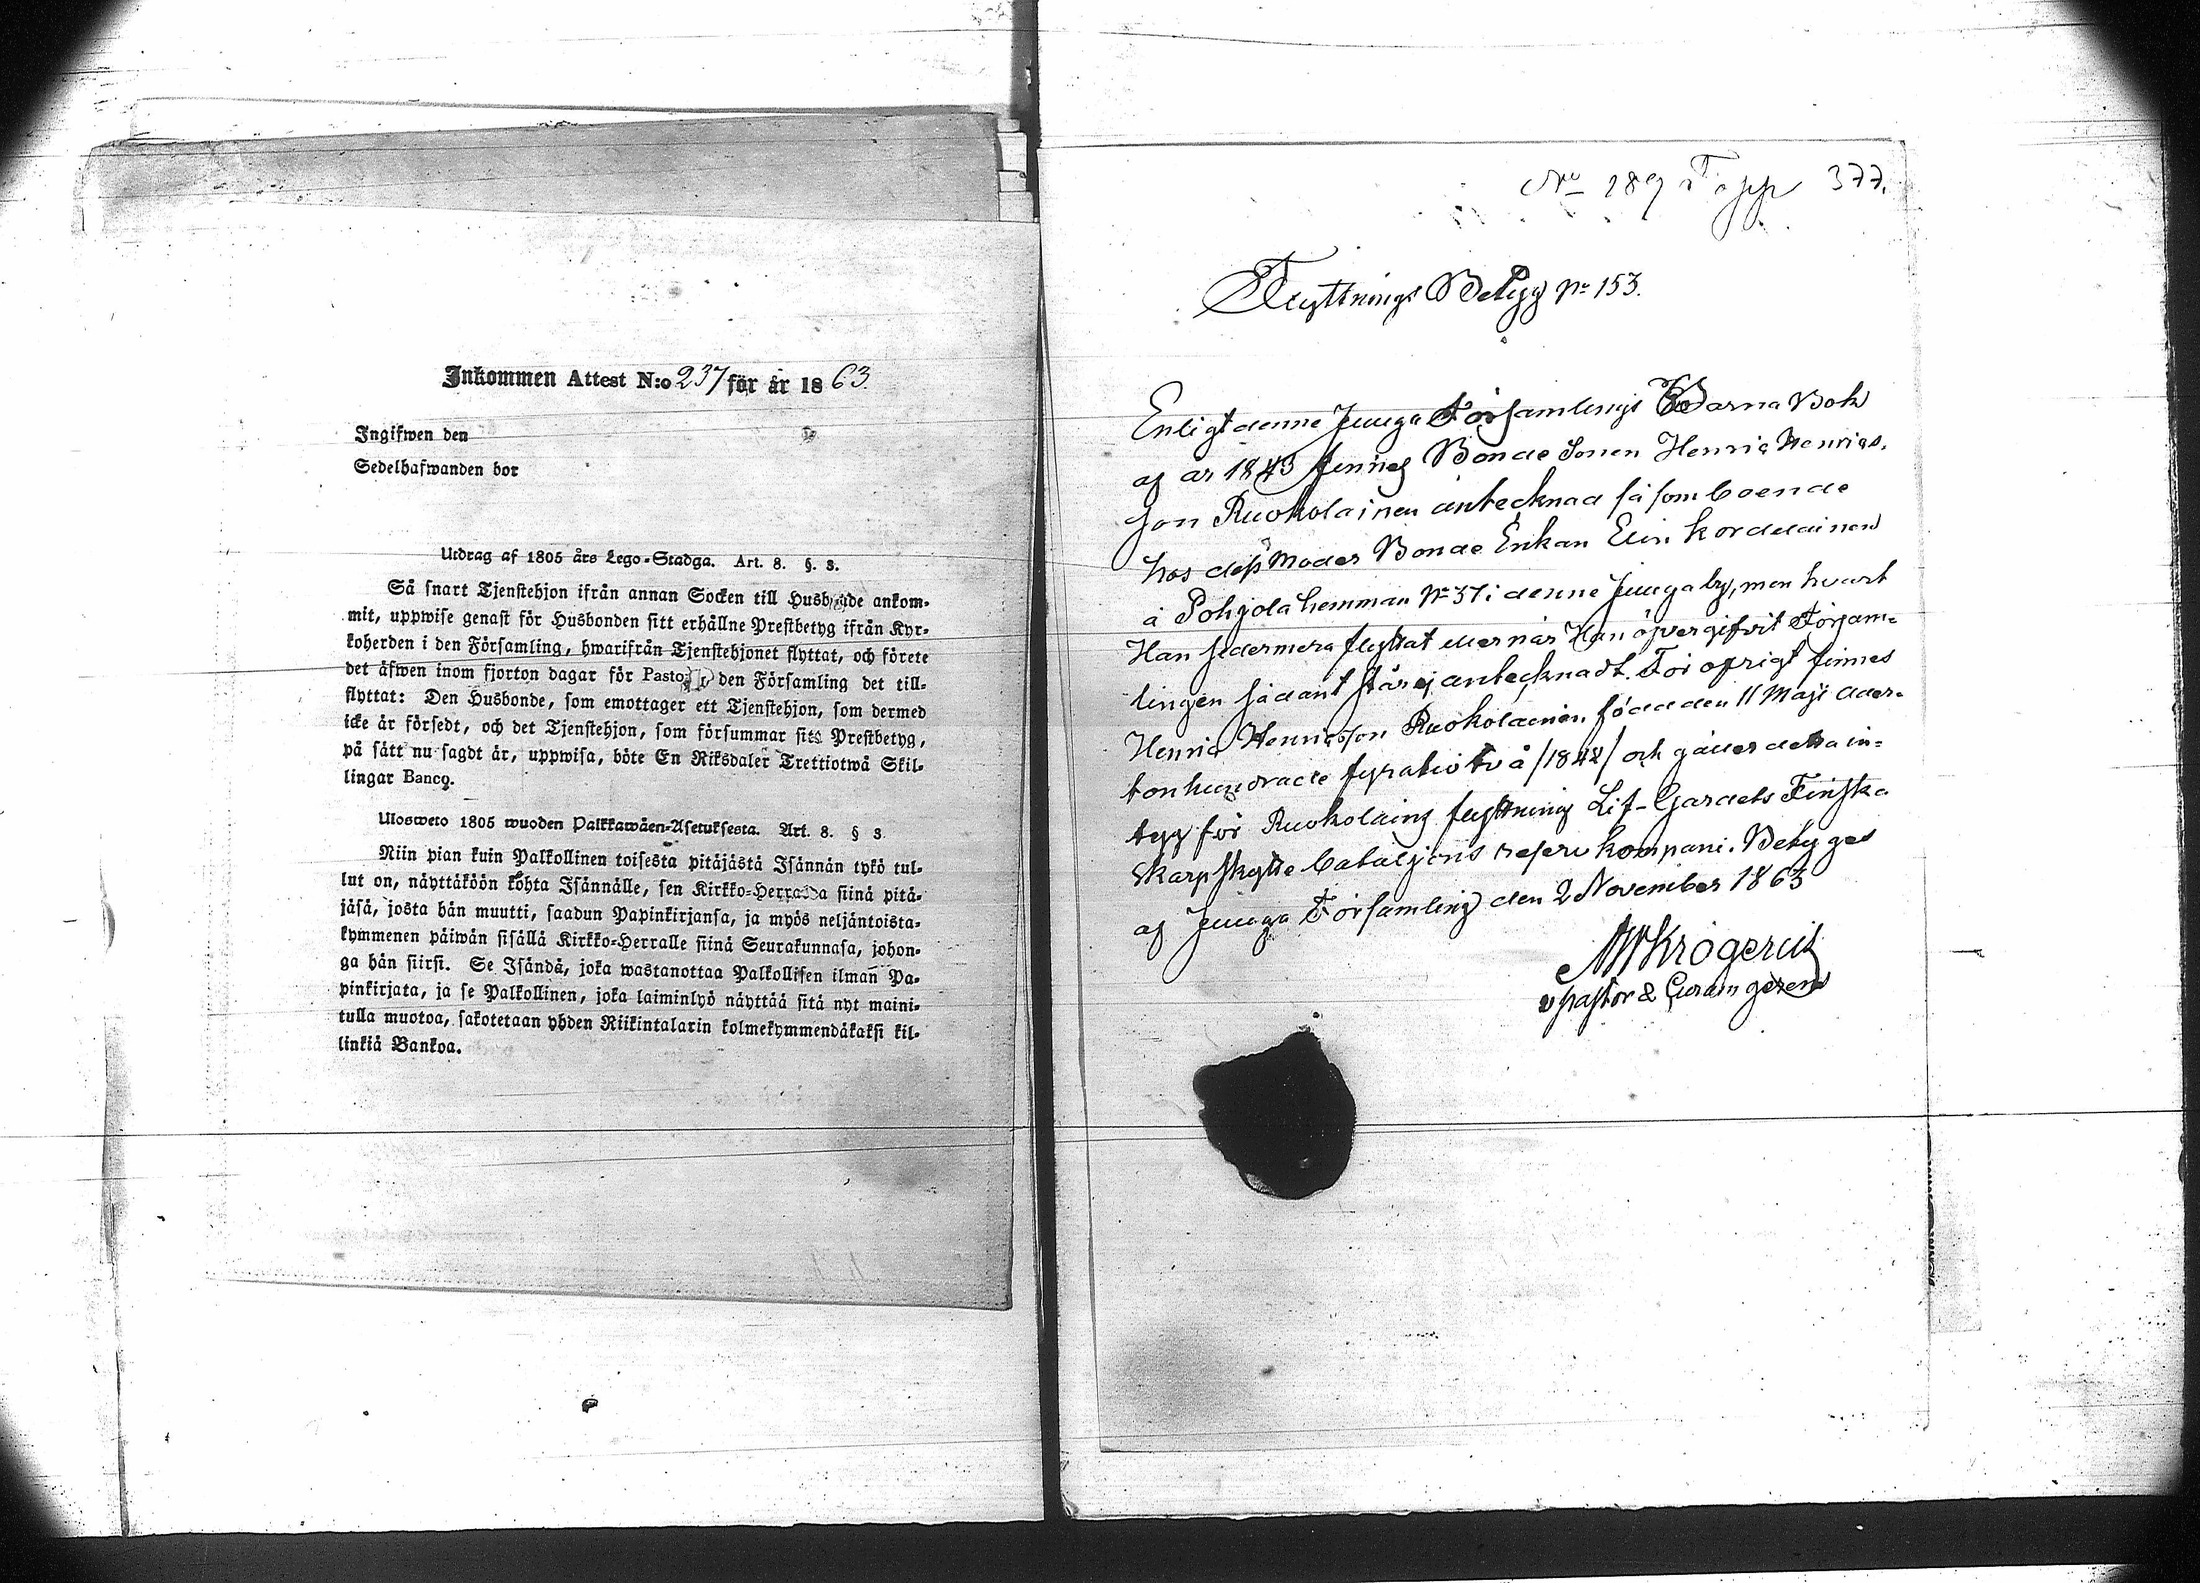 Inkommen Attest N:o 237 för år 1863.
Ingifwen den
Sedelhafwanden bor
Utdrag af 1805 års Lego-Stadga. Art. 8. §. 3.
Så snart Tjenstehjon ifrån annan Socken till Husbonde ankom-
mit, uppwise genast för Husbonden sitt erhållne Prestbetyg ifrån Kyr-
koherden i den Församling, hwarifrån Tjenstehjonet flyttat, och förete
det äfwen inom fjorton dagar för Pastor i den Församling det till-
flyttat: Den Husbonde, som emottager ett Tjenstehjon, som dermed
icke är försedt, och det Tjenstehjon, som försummar sitt Prestbetyg,
på sätt nu sagdt är, uppwisa, böte En Riksdaler Trettiotwå Skil-
lingar Banco.
Ulosweto 1805 wuoden Palkkawäen-Asetuksesta. Art. 8. § 3.
Niin pian kuin Palkollinen toisesta pitäjästä Isännän tykö tul-
lut on, näyttäköön kohta Isännälle, sen Kirkko-Herralda siinä pitä-
jäsä, josta hän muutti, saadun Papinkirjansa, ja myös neljäntoista-
kymmenen päiwän sisällä Kirkko-Herralle siinä Seurakunnasa, johon-
ga hän siirsi. Se Isändä, joka wastanottaa Palkollisen ilman Pa-
pinkirjata, ja se Palkollinen, joka laiminlyö näyttää sitä nyt maini-
tulla muotoa, sakotetaan yhden Riikintalarin kolmekymmendäkaksi kil-
linkiä Bankoa.
No 189 377.
Flyttnings Betyg No 153.
Enligt denne Juuga Församlings Barna Bok
af år 1843 finnes Bonde Sonen Henric Henrics-
son Ruokolainen antecknad så som boende
hos dess Moder Bonde Enkan Elin Kordelainen
å Pohjola hemman No 37 i denne Juuga by, men hvart
Han sedermera flyttat eller när Han öfvergifvit Försam-
lingen sådant står ej antecknadt. För öfrigt finnes
Henric Henricsson Ruokolainen född den 11 Maji Ader-
tonhundrade fyratiotvå /1842/ och gäller detta in-
tyg för Ruokolains flyttning Lif-Gardets Finska
Skarpskytte bataljons reserv kompani. Betyges
af Juuga Församling den 2 November 1863
Krogerius
v pastor & Curam gerens